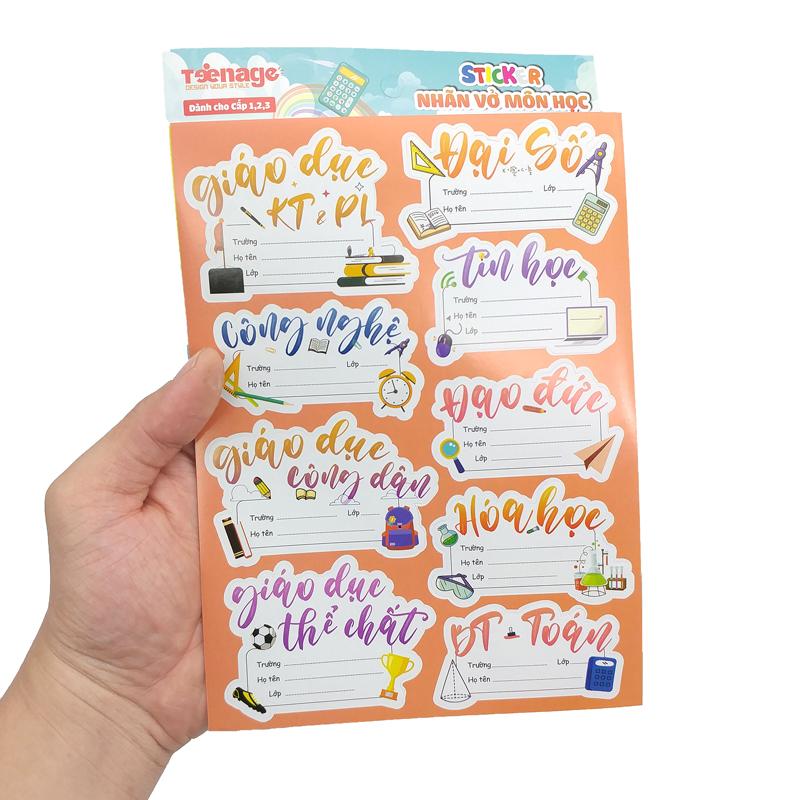 Teenage
DESIGN YOUR STYLE
Dành cho Cấp 1,2,3
STICKER
NHÃN VỞ MÔN HỌC
giáo dục
KT & PL
Trường
Họ tên
Lớp
Đại Số
Trường Lớp
Họ tên
tin học
Trường
Họ tên
Lớp
Công nghệ
Trường Lớp
Họ tên
Đạo đức
Trường
Họ tên
Lớp
giáo dục
công dân
Trường Lớp
Họ tên
Hóa học
Trường
Họ tên
Lớp
giáo dục
thể chất
Trường
Họ tên
Lớp
BT - Toán
Trường Lớp
Họ tên